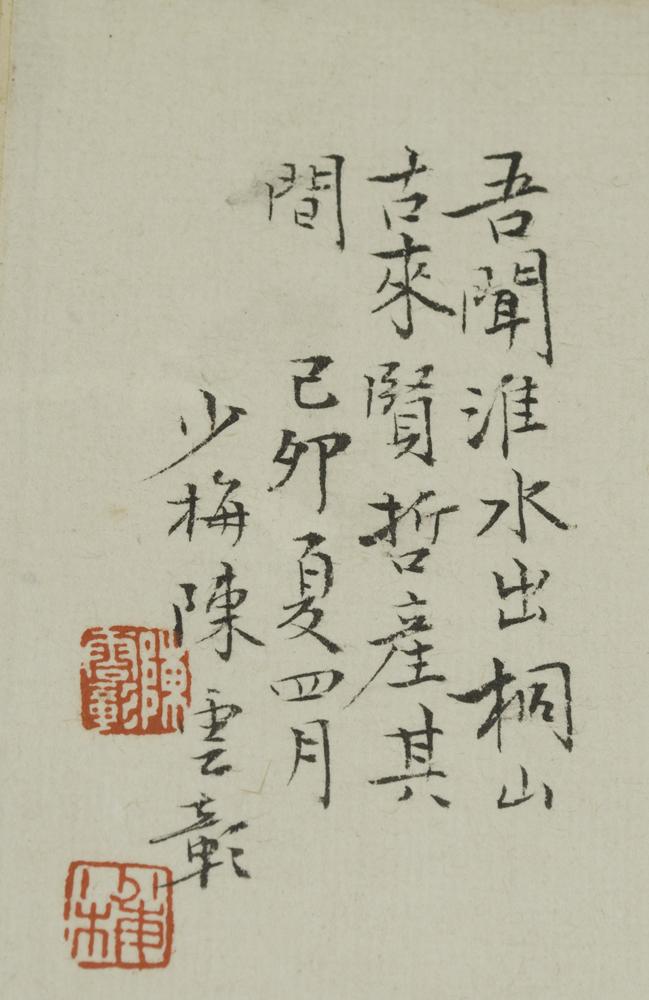 吾聞淮水出桐山
古來賢哲產其
間
己卯夏四月
少梅陳雲彰
陳雲彰
少梅